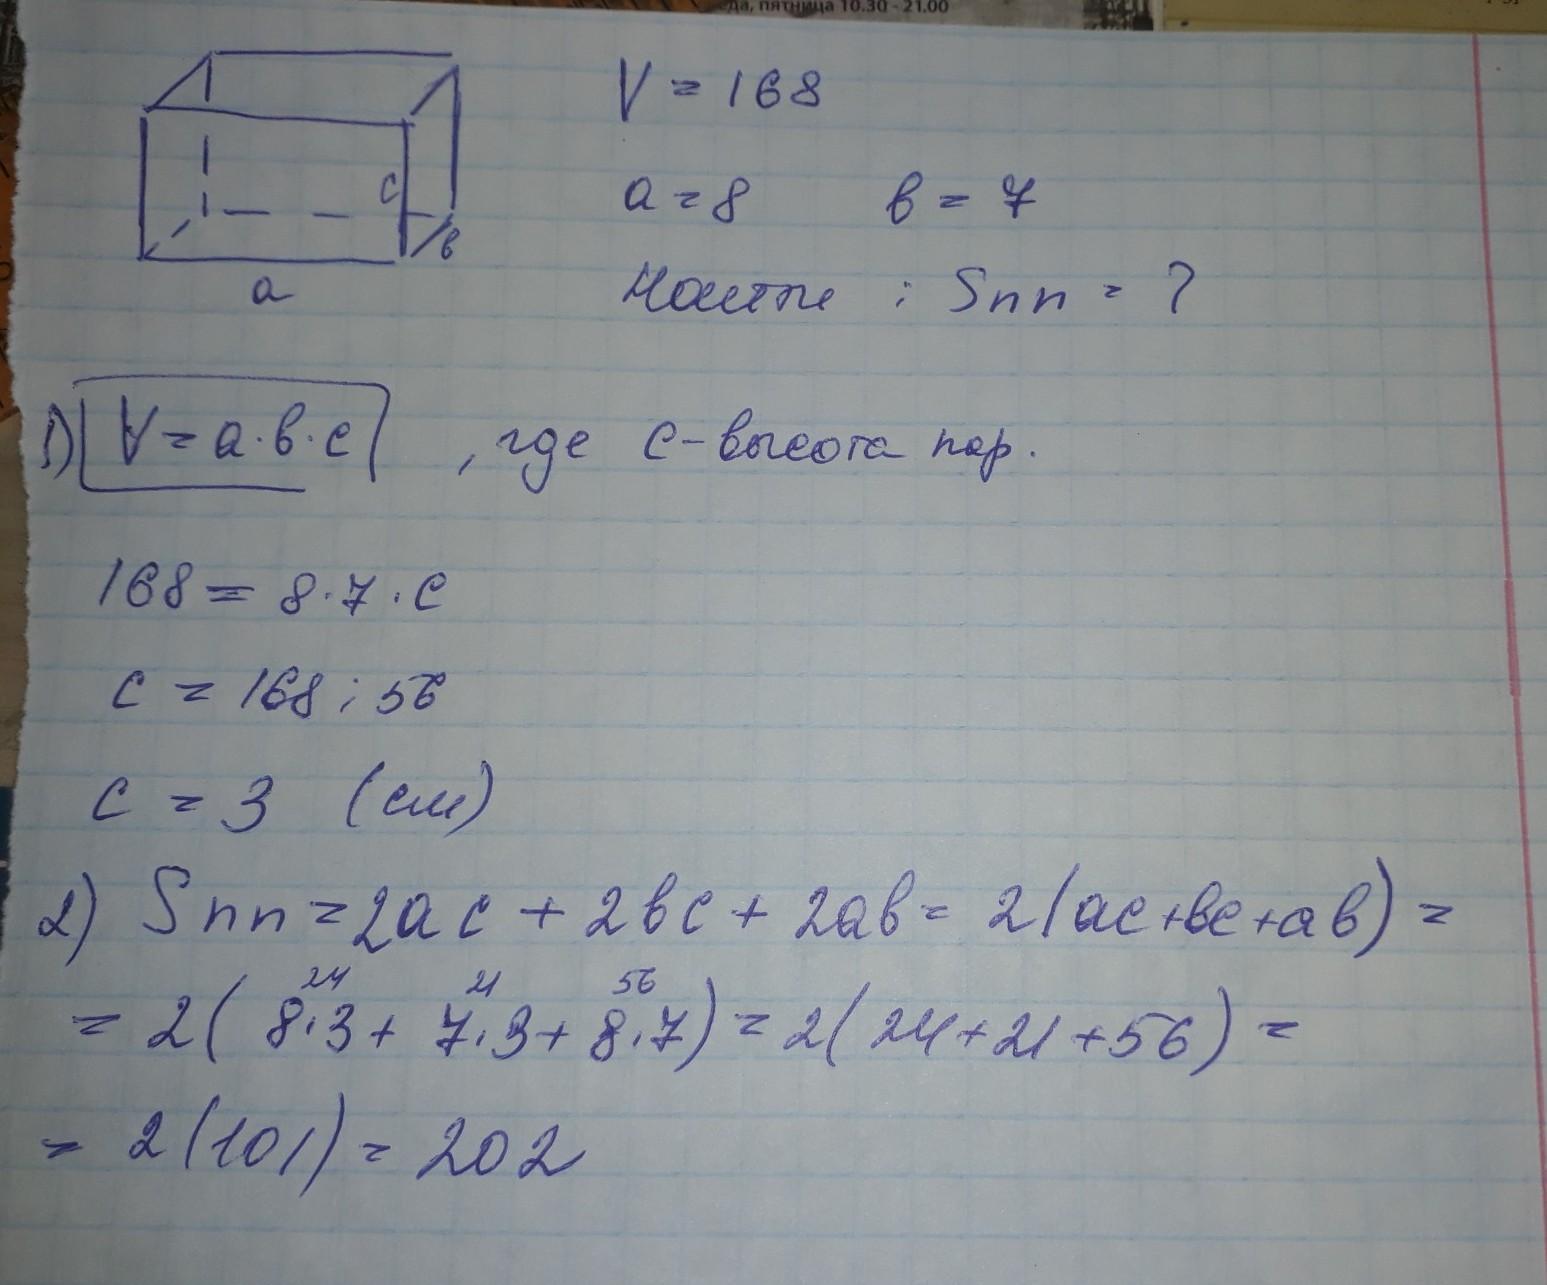 еда, пятница 10.30 - 21.00
V = 168
a = 8 в = 7
Найти : Sпп = ?
c
в
a
1) V = a·в·c , где c - высота пар.
168 = 8·7·c
c = 168 : 56
c = 3 (см)
2) Sпп = 2ac + 2вc + 2aв = 2(ac+вc+aв) =
24 21 56
= 2( 8·3 + 7·3 + 8·7) = 2( 24 + 21 + 56) =
= 2(101) = 202